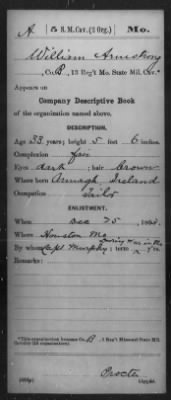 A | 5 S.M. Cav. (3 Org.) | Mo.
William Armstrong
, Co. B, 13 Reg't Mo. State Mil. Cav.*
Appears on
Company Descriptive Book
of the organization named above.
DESCRIPTION.
Age 33 years; height 5 feet 6 inches.
Complexion Fair
Eyes dark; hair brown
Where born Armagh, Ireland
Occupation Tailor
ENLISTMENT.
When Dec 25, 186
Where Houston Mo
during war in Mo
By whom Capt Murphy; term y'rs.
Remarks:
*This organization became Co. B, 5 Reg't Missouri State Mil.
Cavalry (3d organization)
Procter
Copyist.